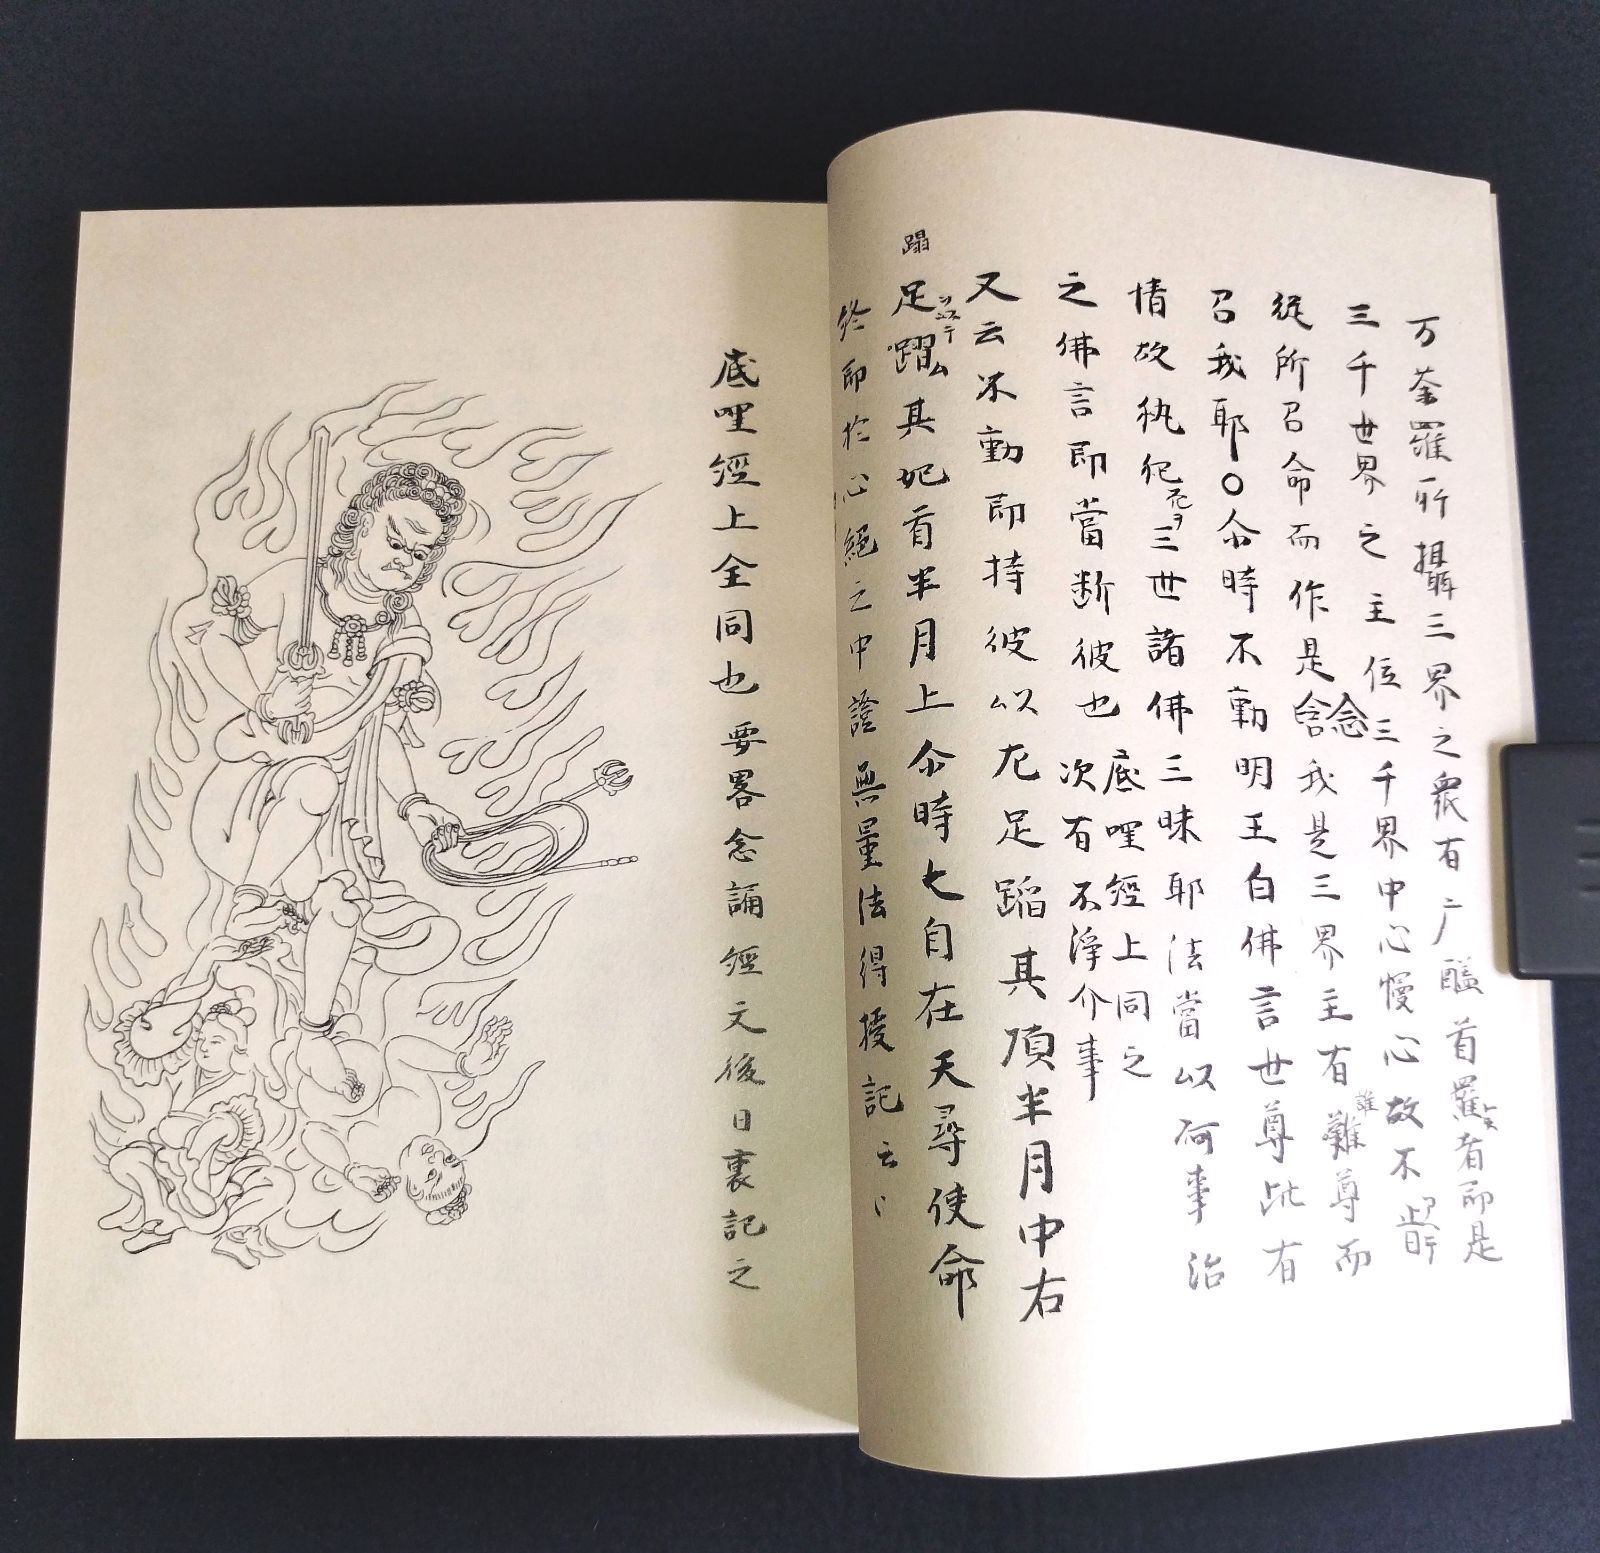 万荼羅所攝三界之衆有广醯首羅者即是
三千世界之主位三千界中心慢心故不
從所召命而作是念我是三界主有誰難尊而
召我耶〇尒時不動明王白佛言世尊此有
情故犯三世諸佛三昧耶法當以何事治
之佛言即當断彼也底哩經上同之
次有不淨介事
又云不動即持彼以左足蹈其頂半月中右
蹋
足躡其妃首半月上尒時大自在天尋便命
終即於心絕之中證無量法得授記云〻
底哩經上全同也要畧念誦經文後日裏記之